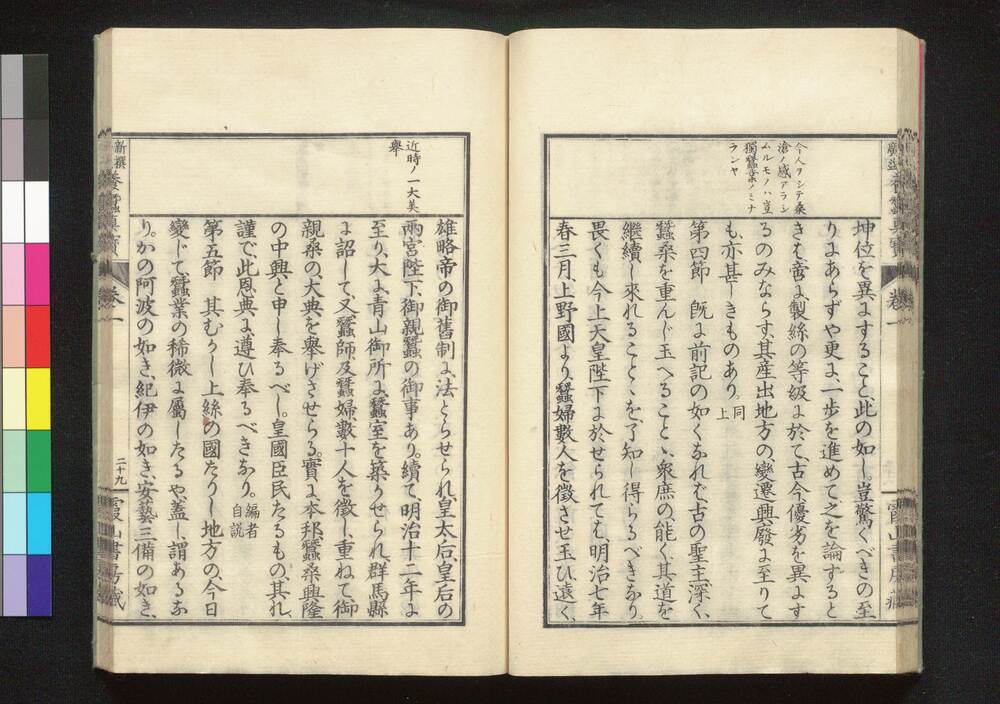 今人ヲシテ桑
滄ノ感アラシ
ムルモノハ豈
獨蠶業ノミナ
ランヤ
坤位を異にすること、此の如し。豈驚くべきの至
りにあらずや更に、一歩を進めて之を論ずると
きは、啻に製絲の等級に於て、古今、優劣を異にす
るのみならす、其産出地方の、變遷興廢に至りて
も、亦甚しきものあり。同上
第四節　既に前記の如くなれば、古の聖主、深く、
蠶桑を重んじ玉へることゝ、衆庶の、能く、其道を
繼續し來れることゝを、了知し得らるべきなり。
畏くも今上天皇陛下に於せられても、明治七年
春三月、上野國より、蠶婦數人を徴させ玉ひ、遠く、
近時ノ一大美
擧
雄略帝の御舊制に、法とらせられ、皇太后、皇后の
兩宮陛下、御親蠶の御事あり。續て、明治十二年に
至り、大に、青山御所に、蠶室を築かせられ、群馬縣
に詔して、又、蠶師、及蠶婦、數十人を徴し、重ねて、御
親桑の、大典を擧げさせらる。實に、本邦、蠶桑興隆
の中興と申し奉るべし。皇國臣民たるもの、其れ、
謹で、此恩典に、遵ひ奉るべきなり。編者自説
第五節　其むかし上絲の國たりし地方の、今日
變じて、蠶業の稀微に屬したるや、蓋し、謂あるな
り。かの阿波の如き、紀伊の如き、安藝三備の如き、
新撰
卷一
二十九